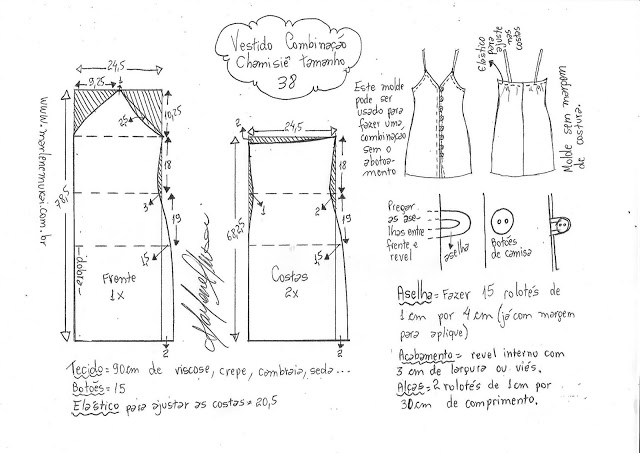 Vestido Combinação
Chamisiê tamanho
38
24,5
9,25
1
25
10,25
18
3
19
1,5
78,5
-dobra-
Frente
1x
2
www.marlenemukai.com.br
2
24,5
18
1
2
19
68,25
1,5
Costas
2x
2
Este molde
pode ser
usado para
fazer uma
combinação
sem o
abotoa-
mento
Elástico
para
ajuste
nas
costas
Molde sem margem
de costura.
Pregar
as ase-
lhas entre
frente e
revel
aselha
Botões
de camisa
Aselha = Fazer 15 rolotés de
1cm por 4cm (já com margem
para aplique)
Acabamento = revel interno com
3 cm de largura ou viés.
Alças = 2 rolotés de 1cm por
30cm de comprimento.
Tecido = 90cm de viscose, crepe, cambraia, seda...
Botões = 15
Elástico para ajustar as costas = 20,5